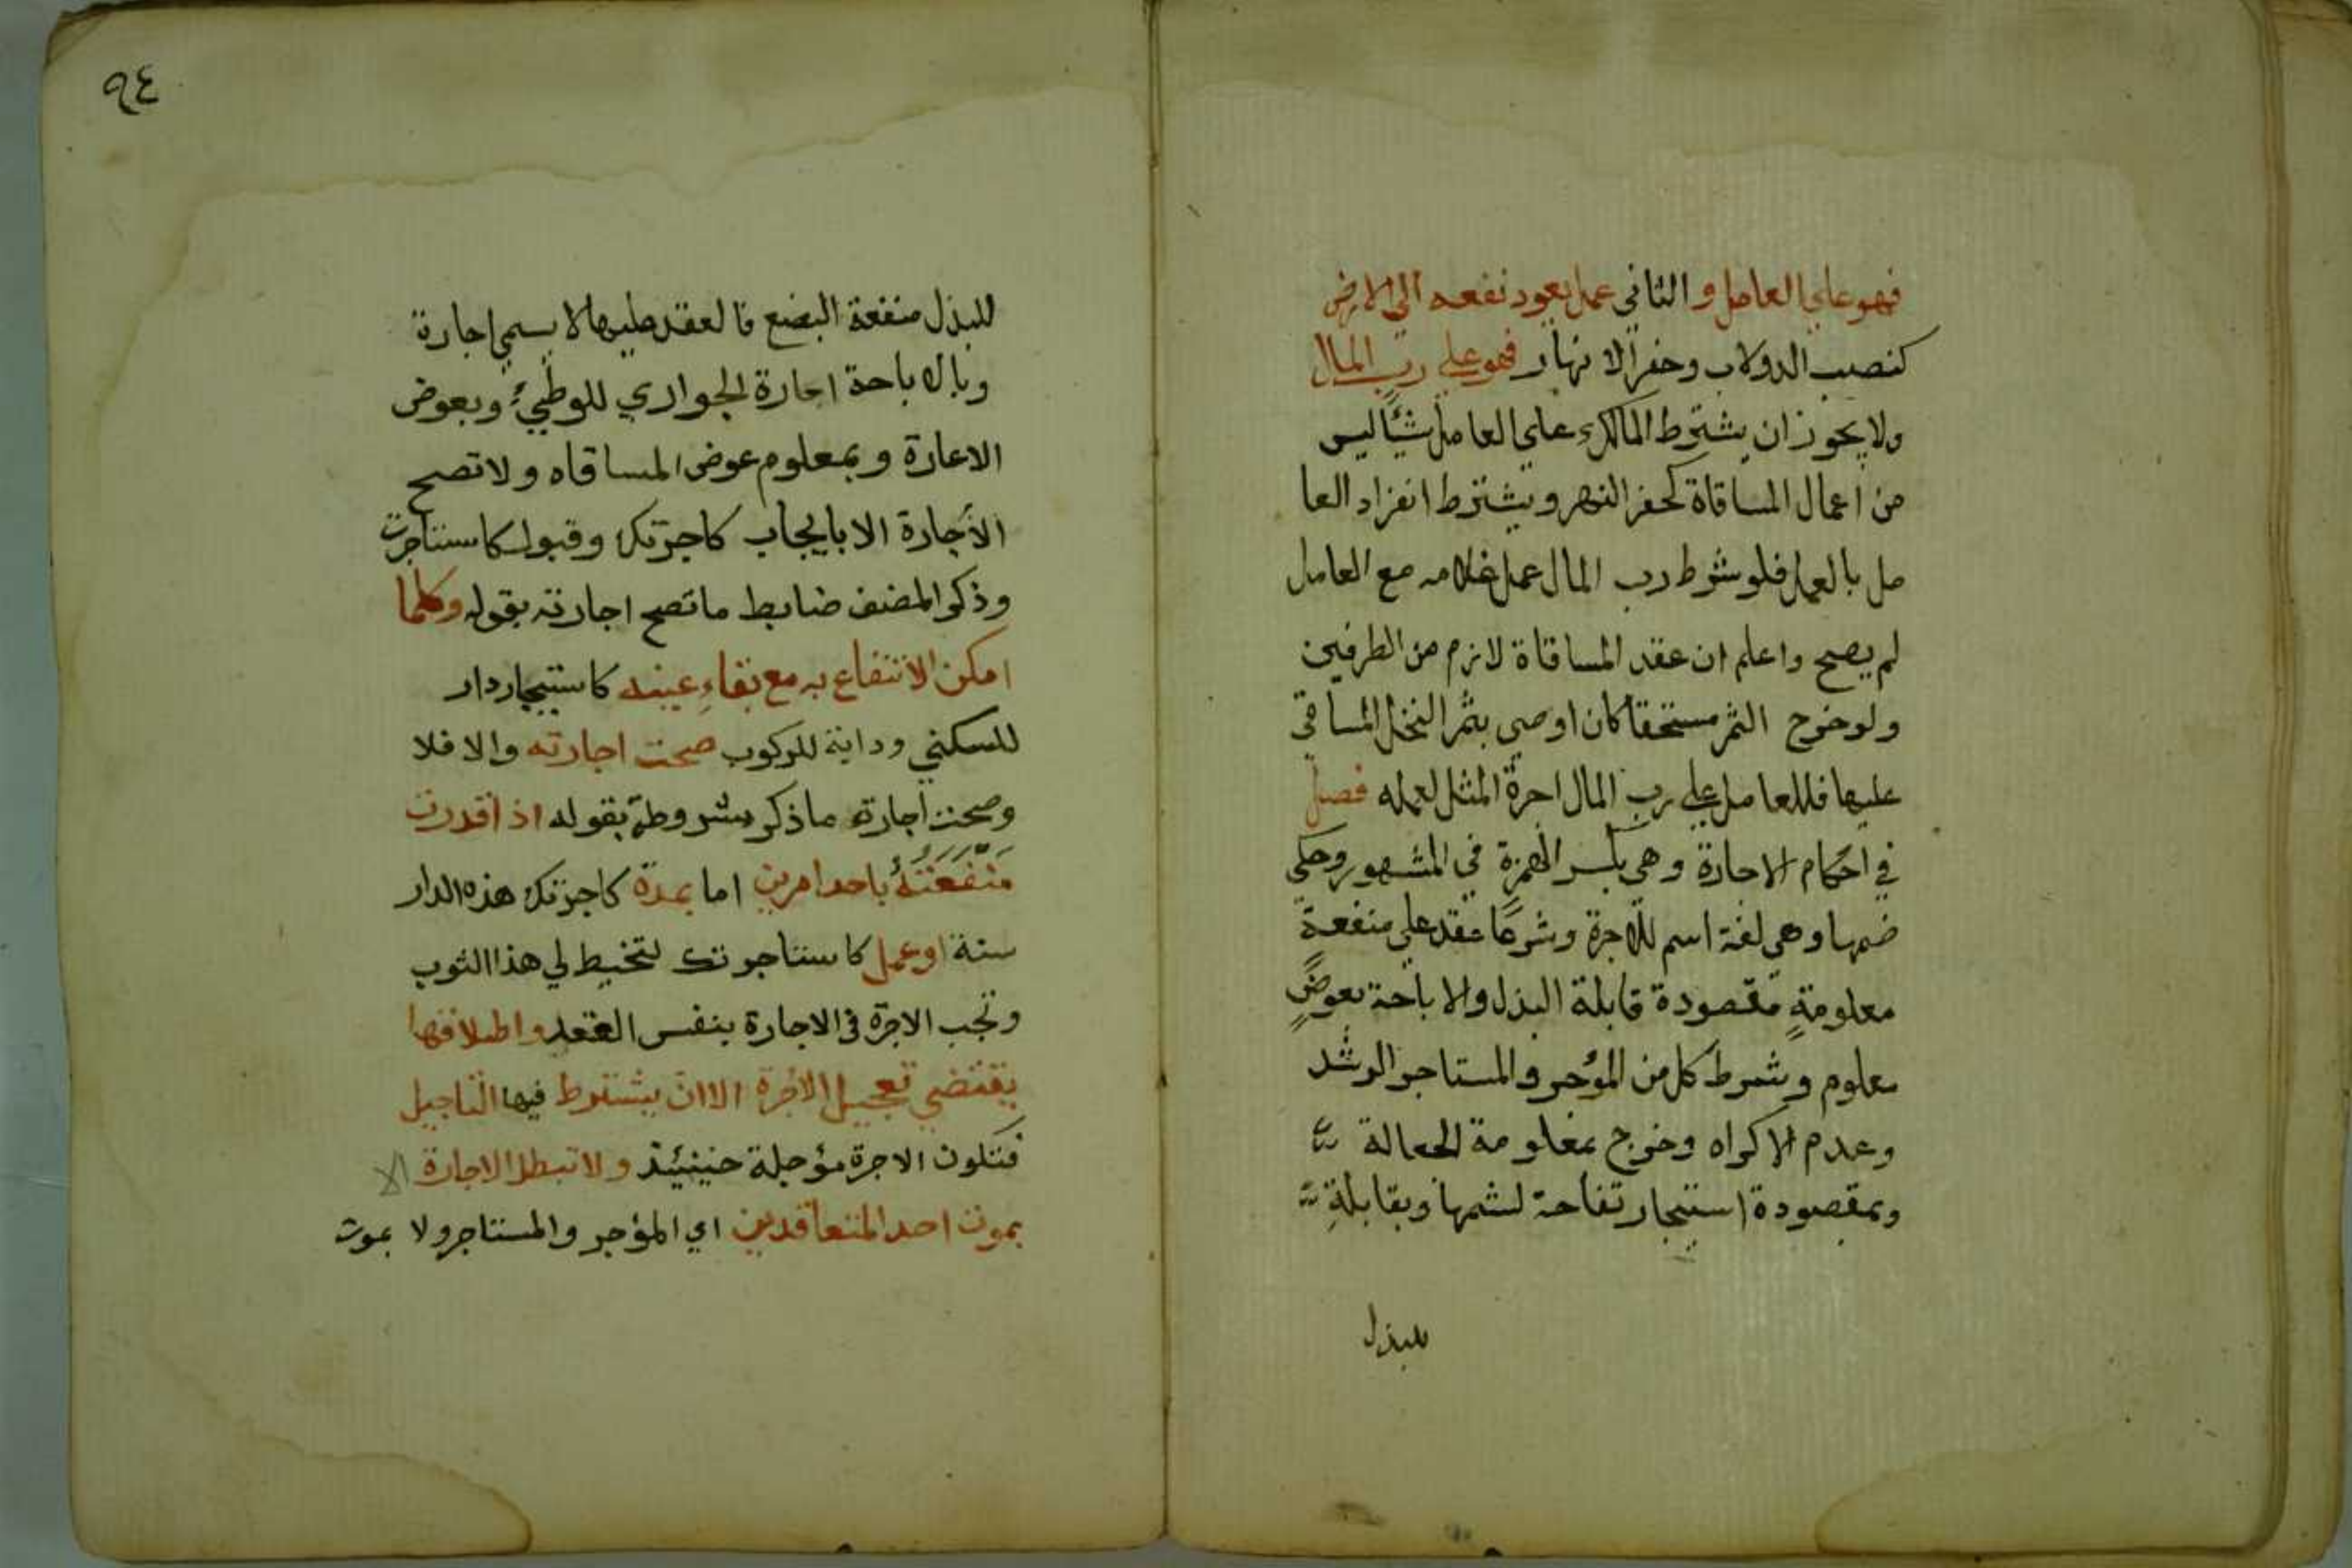 فهو علي العامل و الثاني عمل يعود نفعه الي الارض
كنصب الدولاب وحفر الانهار فهو علي رب المال
ولا يجوز ان يشترط المالك علي العامل شيًا ليس
من اعمال المساقاة كحفر النهر ويشترط انفراد العا
مل بالعمل فلو شرط رب المال عمل غلامه مع العامل
لم يصح واعلم ان عقد المساقاة لازم من الطرفين
ولو خرج الثمر مستحقا كان اوصي بثمر النخل المساقي
عليها فللعامل علي رب المال اجرة المثل لعمله فصل
في احكام الاجارة وهي بكسر الهمزة في المشهور وحكي
ضمها وهي لغة اسم للاجرة وشرعًا عقد علي منفعةٍ
معلومةٍ مقصودة قابلة البذل والاباحة بعوضٍ
معلوم وشرط كل من المؤجر والمستاجر الرشد
وعدم الاكراه وخرج بمعلومة الجعالة
وبمقصودة استيجار تفاحة لشمها وبقابلةٍ
للبذل
٩٤
للبذل منفعة البضع فالعقد عليها لا يسمي اجارة
وبالاباحة اجارة الجواري للوطيئ وبعوض
الاعارة وبمعلوم عوض المساقاه ولا تصح
الأجارة الا بايجاب كاجرتك وقبول كاستاجرت
وذكر المصنف ضابط ما تصح اجارته بقوله وكلما
امكن الانتفاع به مع بقاءِ عينه كاستيجار دار
للسكني ودابة للركوب صحت اجارته والا فلا
وصحت اجارة ماذكر بشروطة بقوله اذا قدرت
مَنْفَعَتُهُ باحد امرين اما بمدة كاجرتك هذه الدار
سنة او عمل كاستاجرتك لتخيط لي هذا الثوب
وتجب الاجرة في الاجارة بنفس العقد واطلاقها
يقتضي تعجيل الاجرة الا ان يشترط فيها التاجيل
فتكون الاجرة مؤجلة حينيئذ ولا تبطل الاجارة الا
بموت احد المتعاقدين اي المؤجر والمستاجر ولا بموت